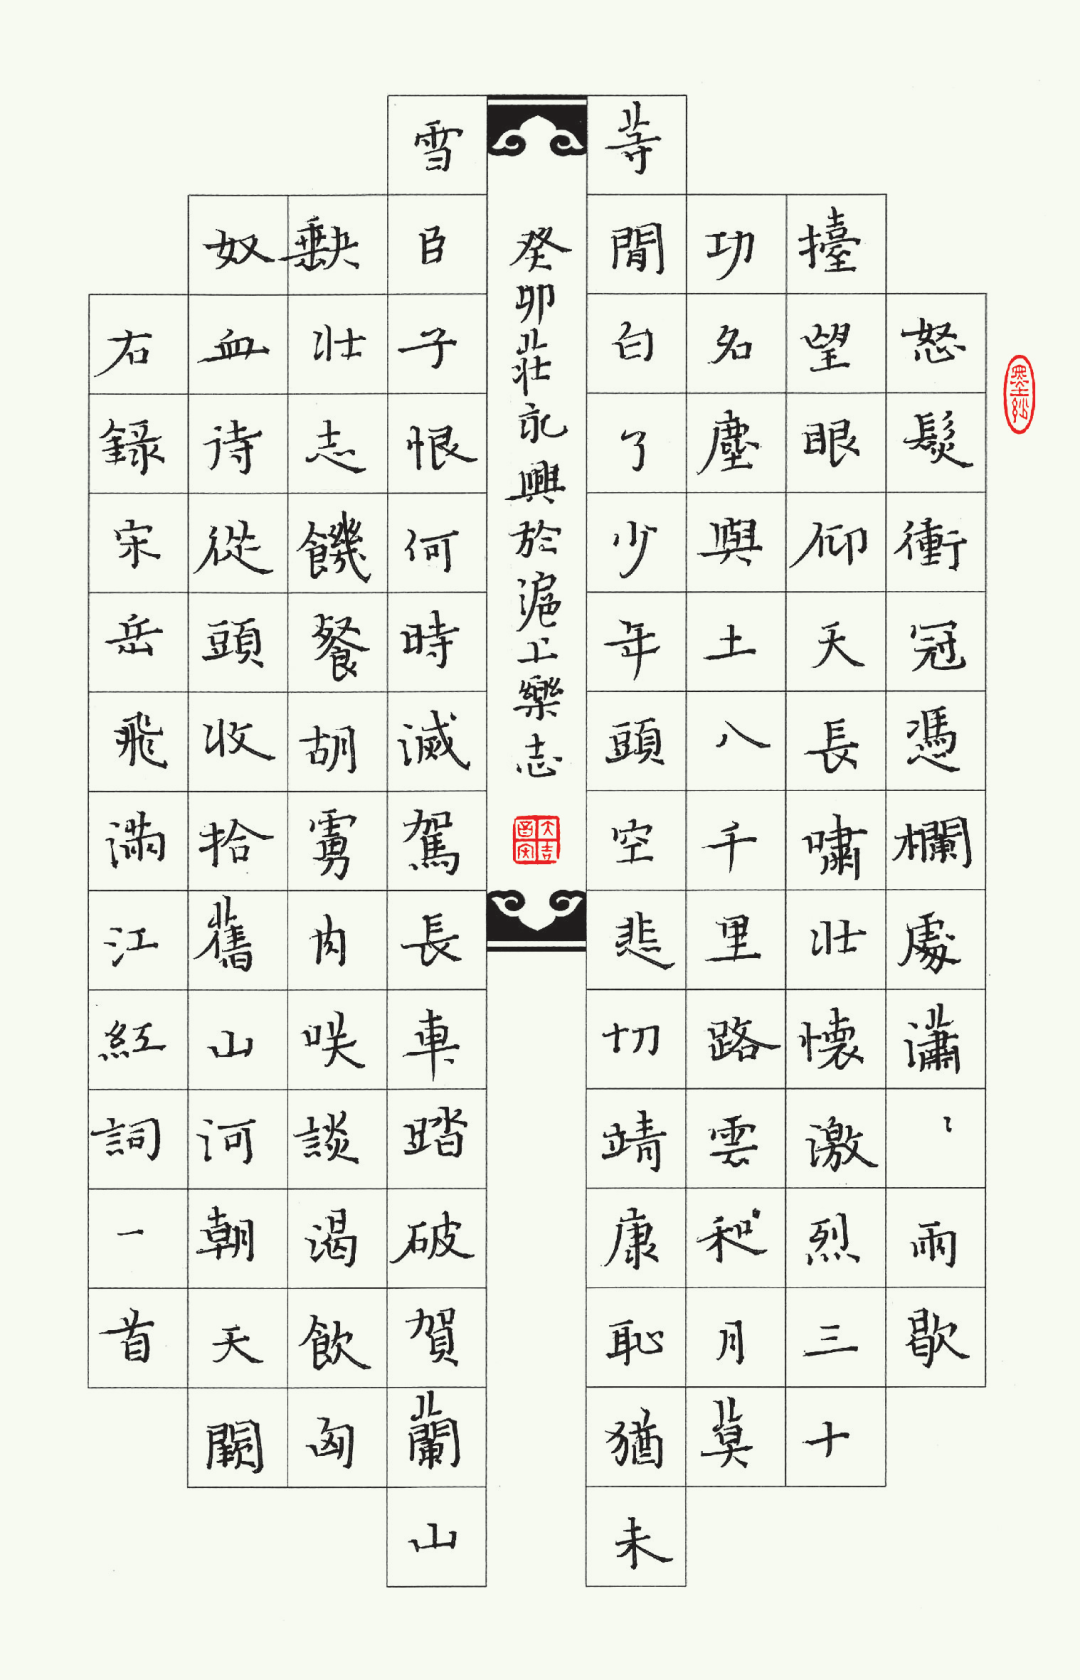 怒髮衝冠憑欄處瀟〻雨歇
擡望眼仰天長嘯壯懷激烈三十
功名塵與土八千里路雲和月莫
等閒白了少年頭空悲切靖康恥猶未
癸卯莊永興於滬上樂志
雪臣子恨何時滅駕長車踏破賀蘭山
缺壯志饑餐胡虜肉咲談渴飲匈
奴血待從頭收拾舊山河朝天闕
右錄宋岳飛滿江紅詞一首